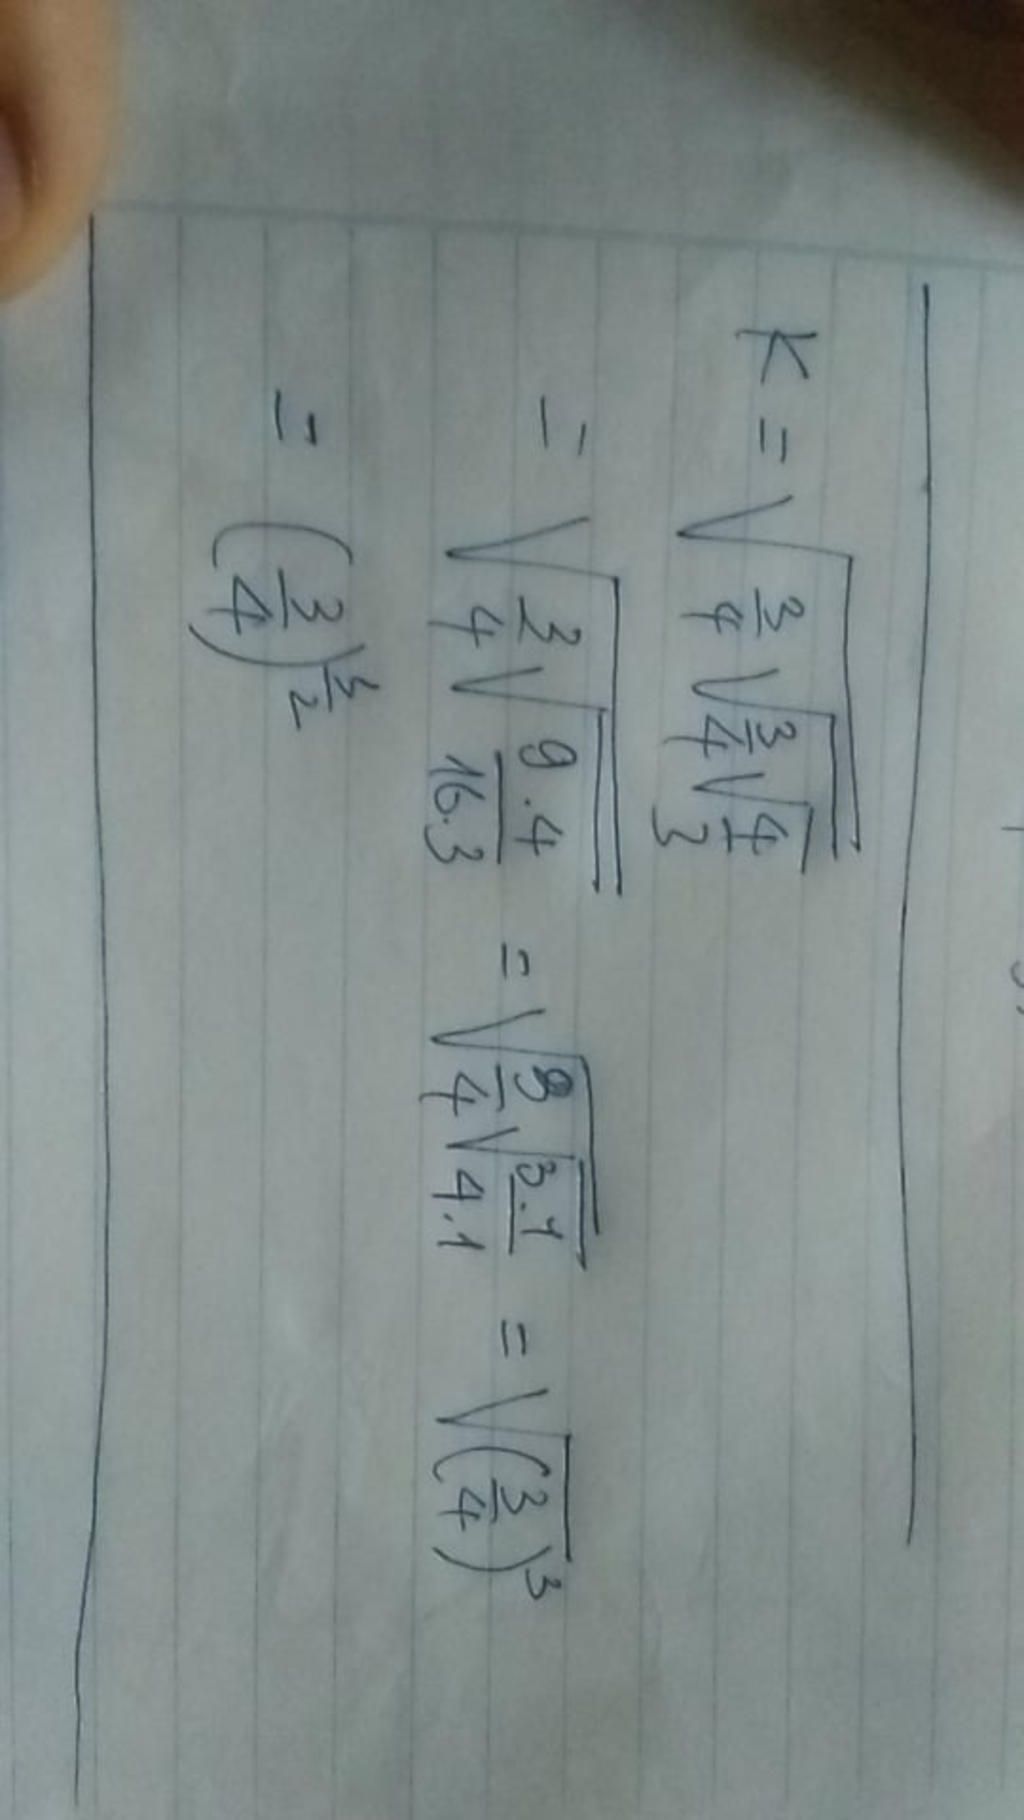 K = √(3/4 √(3/4 √(4/3)))
= √(3/4 √(9.4/16.3)) = √(3/4 √(3.1/4.1)) = √(3/4)³
= (3/4)^(3/2)